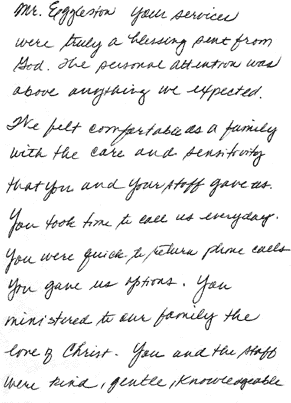 Mr. Eggleston Your services
were truly a blessing sent from
God. The personal attention was
above anything we expected.
We felt comfortable as a family
with the care and sensitivity
that you and your staff gave us.
You took time to call us everyday.
You were quick to return phone calls
You gave us options. You
ministered to our family the
love of Christ. You and the staff
were kind, gentle, knowledgeable